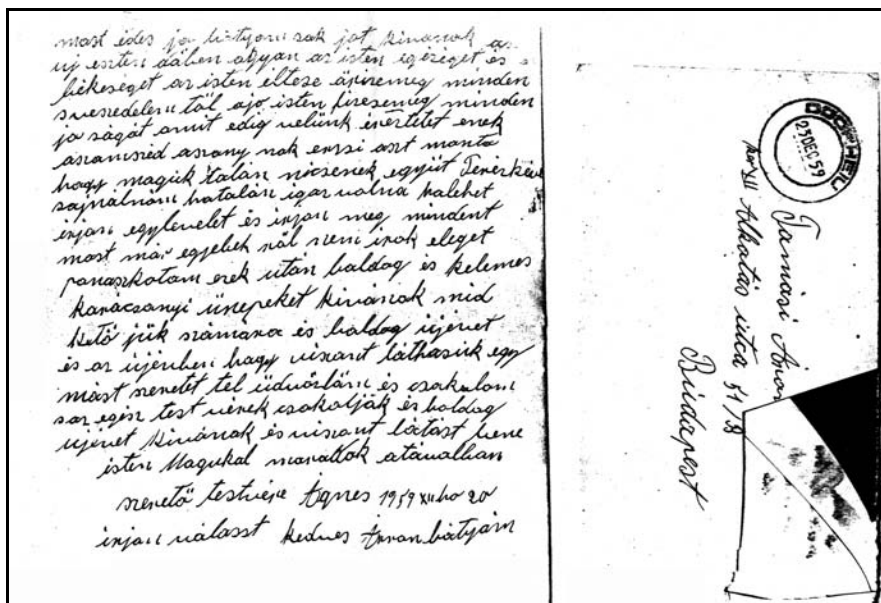 mast édes jo bátyám sok jot kivánok as
uj esztendöben adgyan az isten egéséget és
békeséget az isten eltese örizemeg minden
sveszedelem töl ajo isten fizesemeg minden
jo ságát amit edig velünk éreztetet enek
aszany nak erzsi aszt monta
hogy maguk talán nicsenek együt
sajnálnám hatalán igaz volna halehet
irjan egylevelet és irjan meg mindent
mast már egyebek nöl nem irok eleget
panaszkotam ezek után baldog és kelemes
karácsanyi ünepeket kivánok mid
ketö jük számára és baldog ujévet
és az ujévben hagy viszant láthasuk egy
mást szeretet tel üdvözlöm és csokolom
saz egész test vérek csokolják és baldog
ujévet kivánok és viszant látást vene
isten Magukal maradok atávalban
szeretö testvére Ágnes 1959 XII ho 20
irjan választ kedves Áron bátyám
23 DEC 59
Tamási Áron
XII Alkatás utca 51/B
Budapest